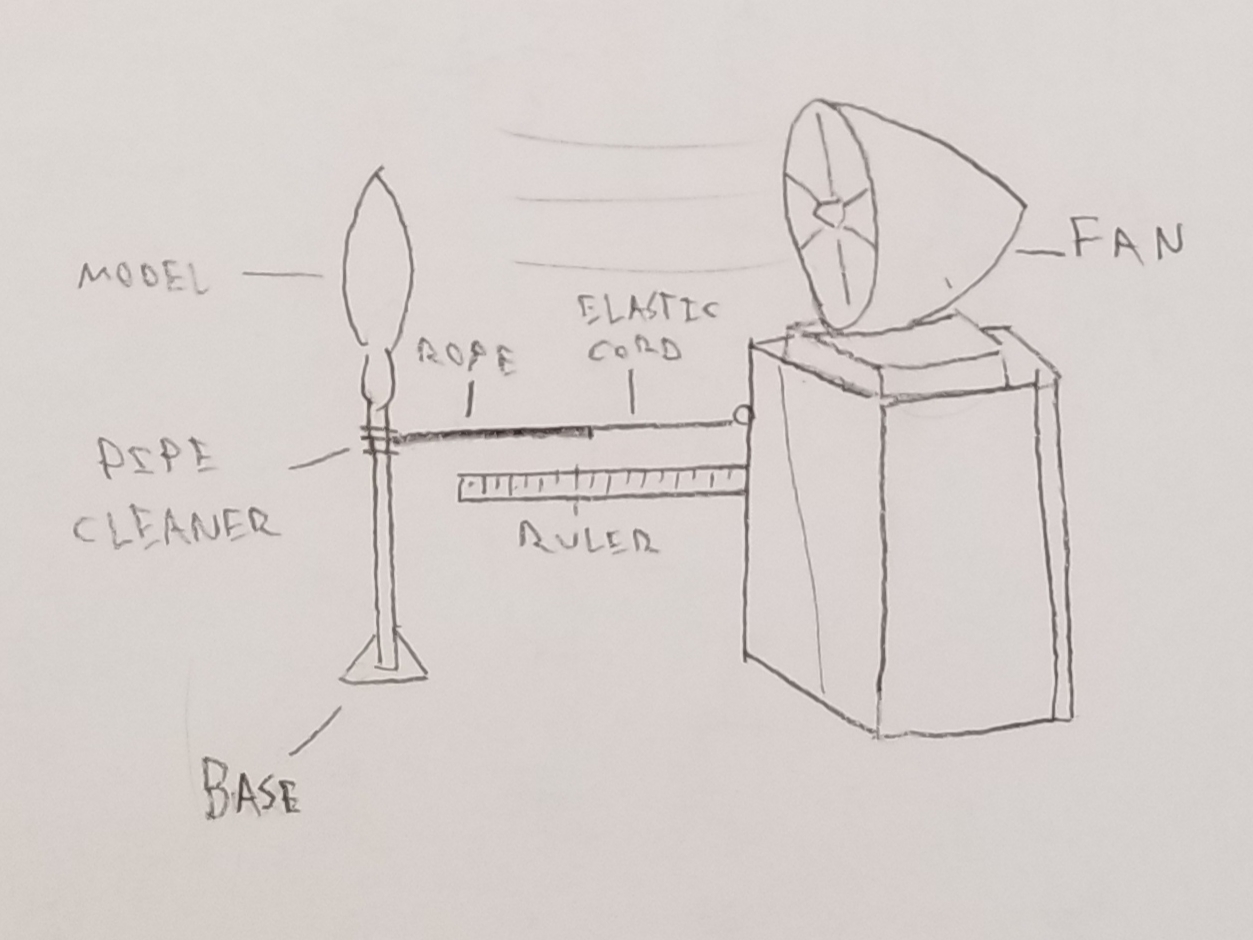 FAN
MODEL
ELASTIC
CORD
ROPE
PIPE
CLEANER
RULER
BASE